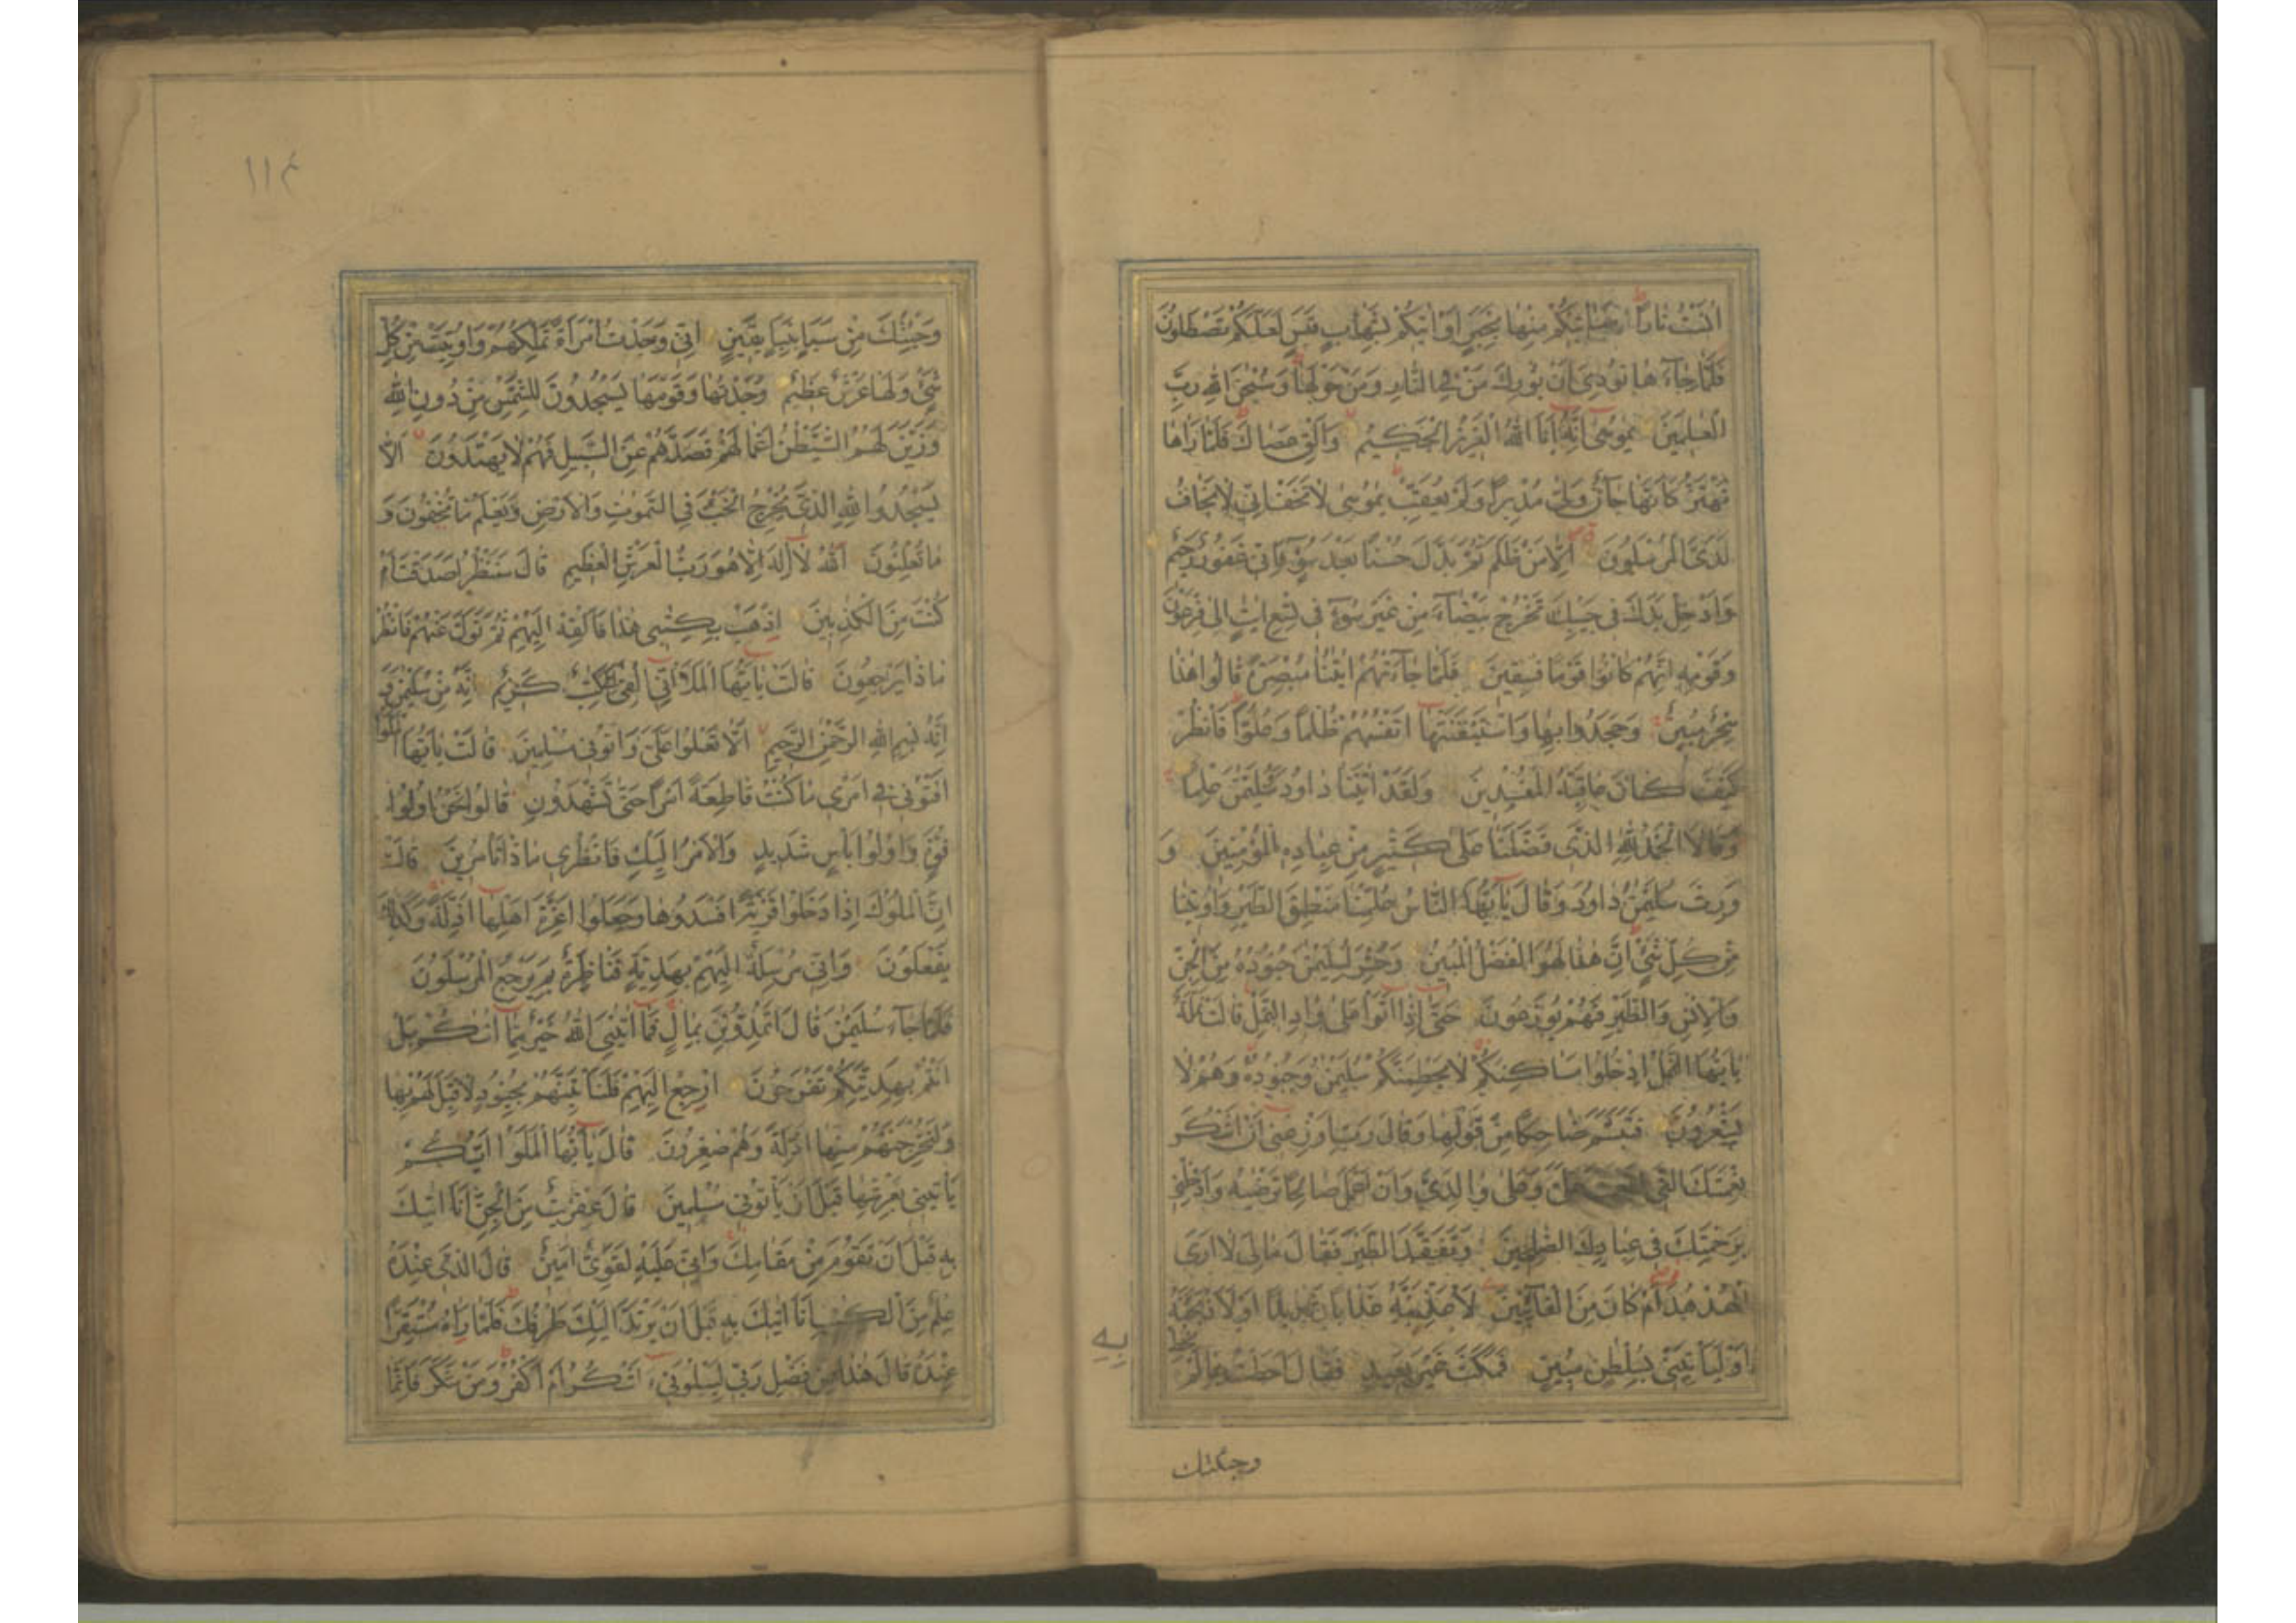 اٰنَسْتُ نَارًا سَاٰتِيكُمْ مِنْهَا بِخَبَرٍ اَوْ اٰتِيكُمْ بِشِهَابٍ قَبَسٍ لَعَلَّكُمْ تَصْطَلُونَ
فَلَمَّا جَآءَهَا نُودِىَ اَنْ بُورِكَ مَنْ فِى النَّارِ وَمَنْ حَوْلَهَا وَسُبْحٰنَ اللهِ رَبِّ
الْعٰلَمِينَ يٰمُوسٰى اِنَّهُ اَنَا اللهُ الْعَزِيزُ الْحَكِيمُ وَاَلْقِ عَصَاكَ فَلَمَّا رَاٰهَا
تَهْتَزُّ كَاَنَّهَا جَآنٌّ وَلّٰى مُدْبِرًا وَلَمْ يُعَقِّبْ يٰمُوسٰى لَا تَخَفْ اِنِّى لَا يَخَافُ
لَدَىَّ الْمُرْسَلُونَ اِلَّا مَنْ ظَلَمَ ثُمَّ بَدَّلَ حُسْنًا بَعْدَ سُوٓءٍ فَاِنِّى غَفُورٌ رَحِيمٌ
وَاَدْخِلْ يَدَكَ فِى جَيْبِكَ تَخْرُجْ بَيْضَآءَ مِنْ غَيْرِ سُوٓءٍ فِى تِسْعِ اٰيٰتٍ اِلٰى فِرْعَوْنَ
وَقَوْمِهِ اِنَّهُمْ كَانُوا قَوْمًا فٰسِقِينَ فَلَمَّا جَآءَتْهُمْ اٰيٰتُنَا مُبْصِرَةً قَالُوا هٰذَا
سِحْرٌ مُبِينٌ وَجَحَدُوا بِهَا وَاسْتَيْقَنَتْهَا اَنْفُسُهُمْ ظُلْمًا وَعُلُوًّا فَانْظُرْ
كَيْفَ كَانَ عَاقِبَةُ الْمُفْسِدِينَ وَلَقَدْ اٰتَيْنَا دَاوُدَ وَسُلَيْمٰنَ عِلْمًا
وَقَالَا الْحَمْدُ لِلّٰهِ الَّذِى فَضَّلَنَا عَلٰى كَثِيرٍ مِنْ عِبَادِهِ الْمُؤْمِنِينَ وَ
وَرِثَ سُلَيْمٰنُ دَاوُدَ وَقَالَ يٰٓاَيُّهَا النَّاسُ عُلِّمْنَا مَنْطِقَ الطَّيْرِ وَاُوتِينَا
مِنْ كُلِّ شَىْءٍ اِنَّ هٰذَا لَهُوَ الْفَضْلُ الْمُبِينُ وَحُشِرَ لِسُلَيْمٰنَ جُنُودُهُ مِنَ الْجِنِّ
وَالْاِنْسِ وَالطَّيْرِ فَهُمْ يُوزَعُونَ حَتّٰٓى اِذَا اَتَوْا عَلٰى وَادِ النَّمْلِ قَالَتْ نَمْلَةٌ
يٰٓاَيُّهَا النَّمْلُ ادْخُلُوا مَسَاكِنَكُمْ لَا يَحْطِمَنَّكُمْ سُلَيْمٰنُ وَجُنُودُهُ وَهُمْ لَا
يَشْعُرُونَ فَتَبَسَّمَ ضَاحِكًا مِنْ قَوْلِهَا وَقَالَ رَبِّ اَوْزِعْنِىٓ اَنْ اَشْكُرَ
نِعْمَتَكَ الَّتِى اَنْعَمْتَ عَلَىَّ وَعَلٰى وَالِدَىَّ وَاَنْ اَعْمَلَ صَالِحًا تَرْضٰيهُ وَاَدْخِلْنِى
بِرَحْمَتِكَ فِى عِبَادِكَ الصّٰلِحِينَ وَتَفَقَّدَ الطَّيْرَ فَقَالَ مَالِىَ لَا اَرَى
الْهُدْهُدَ اَمْ كَانَ مِنَ الْغَآئِبِينَ لَاُعَذِّبَنَّهُ عَذَابًا شَدِيدًا اَوْ لَاَذْبَحَنَّهُ
اَوْ لَيَاْتِيَنِّى بِسُلْطٰنٍ مُبِينٍ فَمَكَثَ غَيْرَ بَعِيدٍ فَقَالَ اَحَطْتُ بِمَا لَمْ تُحِطْ
بِهِ
وجئتك
۱۱۴
وَجِئْتُكَ مِنْ سَبَاٍ بِنَبَاٍ يَقِينٍ اِنِّى وَجَدْتُ امْرَاَةً تَمْلِكُهُمْ وَاُوتِيَتْ مِنْ كُلِّ
شَىْءٍ وَلَهَا عَرْشٌ عَظِيمٌ وَجَدْتُهَا وَقَوْمَهَا يَسْجُدُونَ لِلشَّمْسِ مِنْ دُونِ اللهِ
وَزَيَّنَ لَهُمُ الشَّيْطٰنُ اَعْمَالَهُمْ فَصَدَّهُمْ عَنِ السَّبِيلِ فَهُمْ لَا يَهْتَدُونَ اَلَّا
يَسْجُدُوا لِلّٰهِ الَّذِى يُخْرِجُ الْخَبْءَ فِى السَّمٰوٰتِ وَالْاَرْضِ وَيَعْلَمُ مَا تُخْفُونَ وَ
مَا تُعْلِنُونَ اَللهُ لَآ اِلٰهَ اِلَّا هُوَ رَبُّ الْعَرْشِ الْعَظِيمِ قَالَ سَنَنْظُرُ اَصَدَقْتَ اَمْ
كُنْتَ مِنَ الْكٰذِبِينَ اِذْهَبْ بِكِتٰبِى هٰذَا فَاَلْقِهْ اِلَيْهِمْ ثُمَّ تَوَلَّ عَنْهُمْ فَانْظُرْ
مَاذَا يَرْجِعُونَ قَالَتْ يٰٓاَيُّهَا الْمَلَؤُا اِنِّىٓ اُلْقِىَ اِلَىَّ كِتٰبٌ كَرِيمٌ اِنَّهُ مِنْ سُلَيْمٰنَ وَ
اِنَّهُ بِسْمِ اللهِ الرَّحْمٰنِ الرَّحِيمِ اَلَّا تَعْلُوا عَلَىَّ وَاْتُونِى مُسْلِمِينَ قَالَتْ يٰٓاَيُّهَا الْمَلَؤُا
اَفْتُونِى فِىٓ اَمْرِى مَا كُنْتُ قَاطِعَةً اَمْرًا حَتّٰى تَشْهَدُونِ قَالُوا نَحْنُ اُولُوا
قُوَّةٍ وَاُولُوا بَاْسٍ شَدِيدٍ وَالْاَمْرُ اِلَيْكِ فَانْظُرِى مَاذَا تَاْمُرِينَ قَالَتْ
اِنَّ الْمُلُوكَ اِذَا دَخَلُوا قَرْيَةً اَفْسَدُوهَا وَجَعَلُوٓا اَعِزَّةَ اَهْلِهَا اَذِلَّةً وَكَذٰلِكَ
يَفْعَلُونَ وَاِنِّى مُرْسِلَةٌ اِلَيْهِمْ بِهَدِيَّةٍ فَنَاظِرَةٌ بِمَ يَرْجِعُ الْمُرْسَلُونَ
فَلَمَّا جَآءَ سُلَيْمٰنَ قَالَ اَتُمِدُّونَنِ بِمَالٍ فَمَآ اٰتٰينِىَ اللهُ خَيْرٌ مِمَّآ اٰتٰيكُمْ بَلْ
اَنْتُمْ بِهَدِيَّتِكُمْ تَفْرَحُونَ اِرْجِعْ اِلَيْهِمْ فَلَنَاْتِيَنَّهُمْ بِجُنُودٍ لَا قِبَلَ لَهُمْ بِهَا
وَلَنُخْرِجَنَّهُمْ مِنْهَا اَذِلَّةً وَهُمْ صٰغِرُونَ قَالَ يٰٓاَيُّهَا الْمَلَؤُا اَيُّكُمْ
يَاْتِينِى بِعَرْشِهَا قَبْلَ اَنْ يَاْتُونِى مُسْلِمِينَ قَالَ عِفْرِيتٌ مِنَ الْجِنِّ اَنَا اٰتِيكَ
بِهِ قَبْلَ اَنْ تَقُومَ مِنْ مَقَامِكَ وَاِنِّى عَلَيْهِ لَقَوِىٌّ اَمِينٌ قَالَ الَّذِى عِنْدَهُ
عِلْمٌ مِنَ الْكِتٰبِ اَنَا اٰتِيكَ بِهِ قَبْلَ اَنْ يَرْتَدَّ اِلَيْكَ طَرْفُكَ فَلَمَّا رَاٰهُ مُسْتَقِرًّا
عِنْدَهُ قَالَ هٰذَا مِنْ فَضْلِ رَبِّى لِيَبْلُوَنِىٓ ءَاَشْكُرُ اَمْ اَكْفُرُ وَمَنْ شَكَرَ فَاِنَّمَا